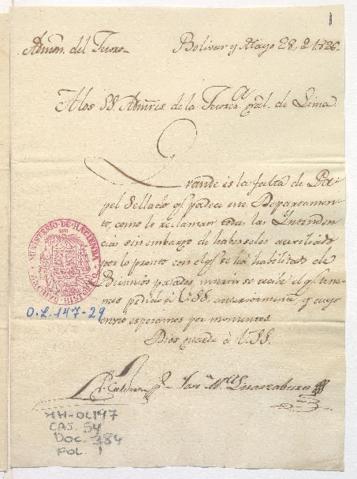 1
Admon. del Tesoro.
Bolivar y Mayo 28, de 1826.
A los SS. Admres de la Tesora. gral. de Lima
Grande es la falta de Pa-
pel Sellado qe. padece este Departamen-
to, como lo reclaman todas las Intenden-
cias sin embargo de haberseles auxiliado
por lo pronto con el qe. se há habilitado de
Bienios pasados, interin se recibe el qe. tene-
mos pedido á VSS. anteriormente y cuyo
envio esperamos por momentos.
Dios guarde á VSS.
MINISTERIO DE HACIENDA
O.L. 147-29
MH-OL147
CAJ. 54
DOC. 384
FOL. 1